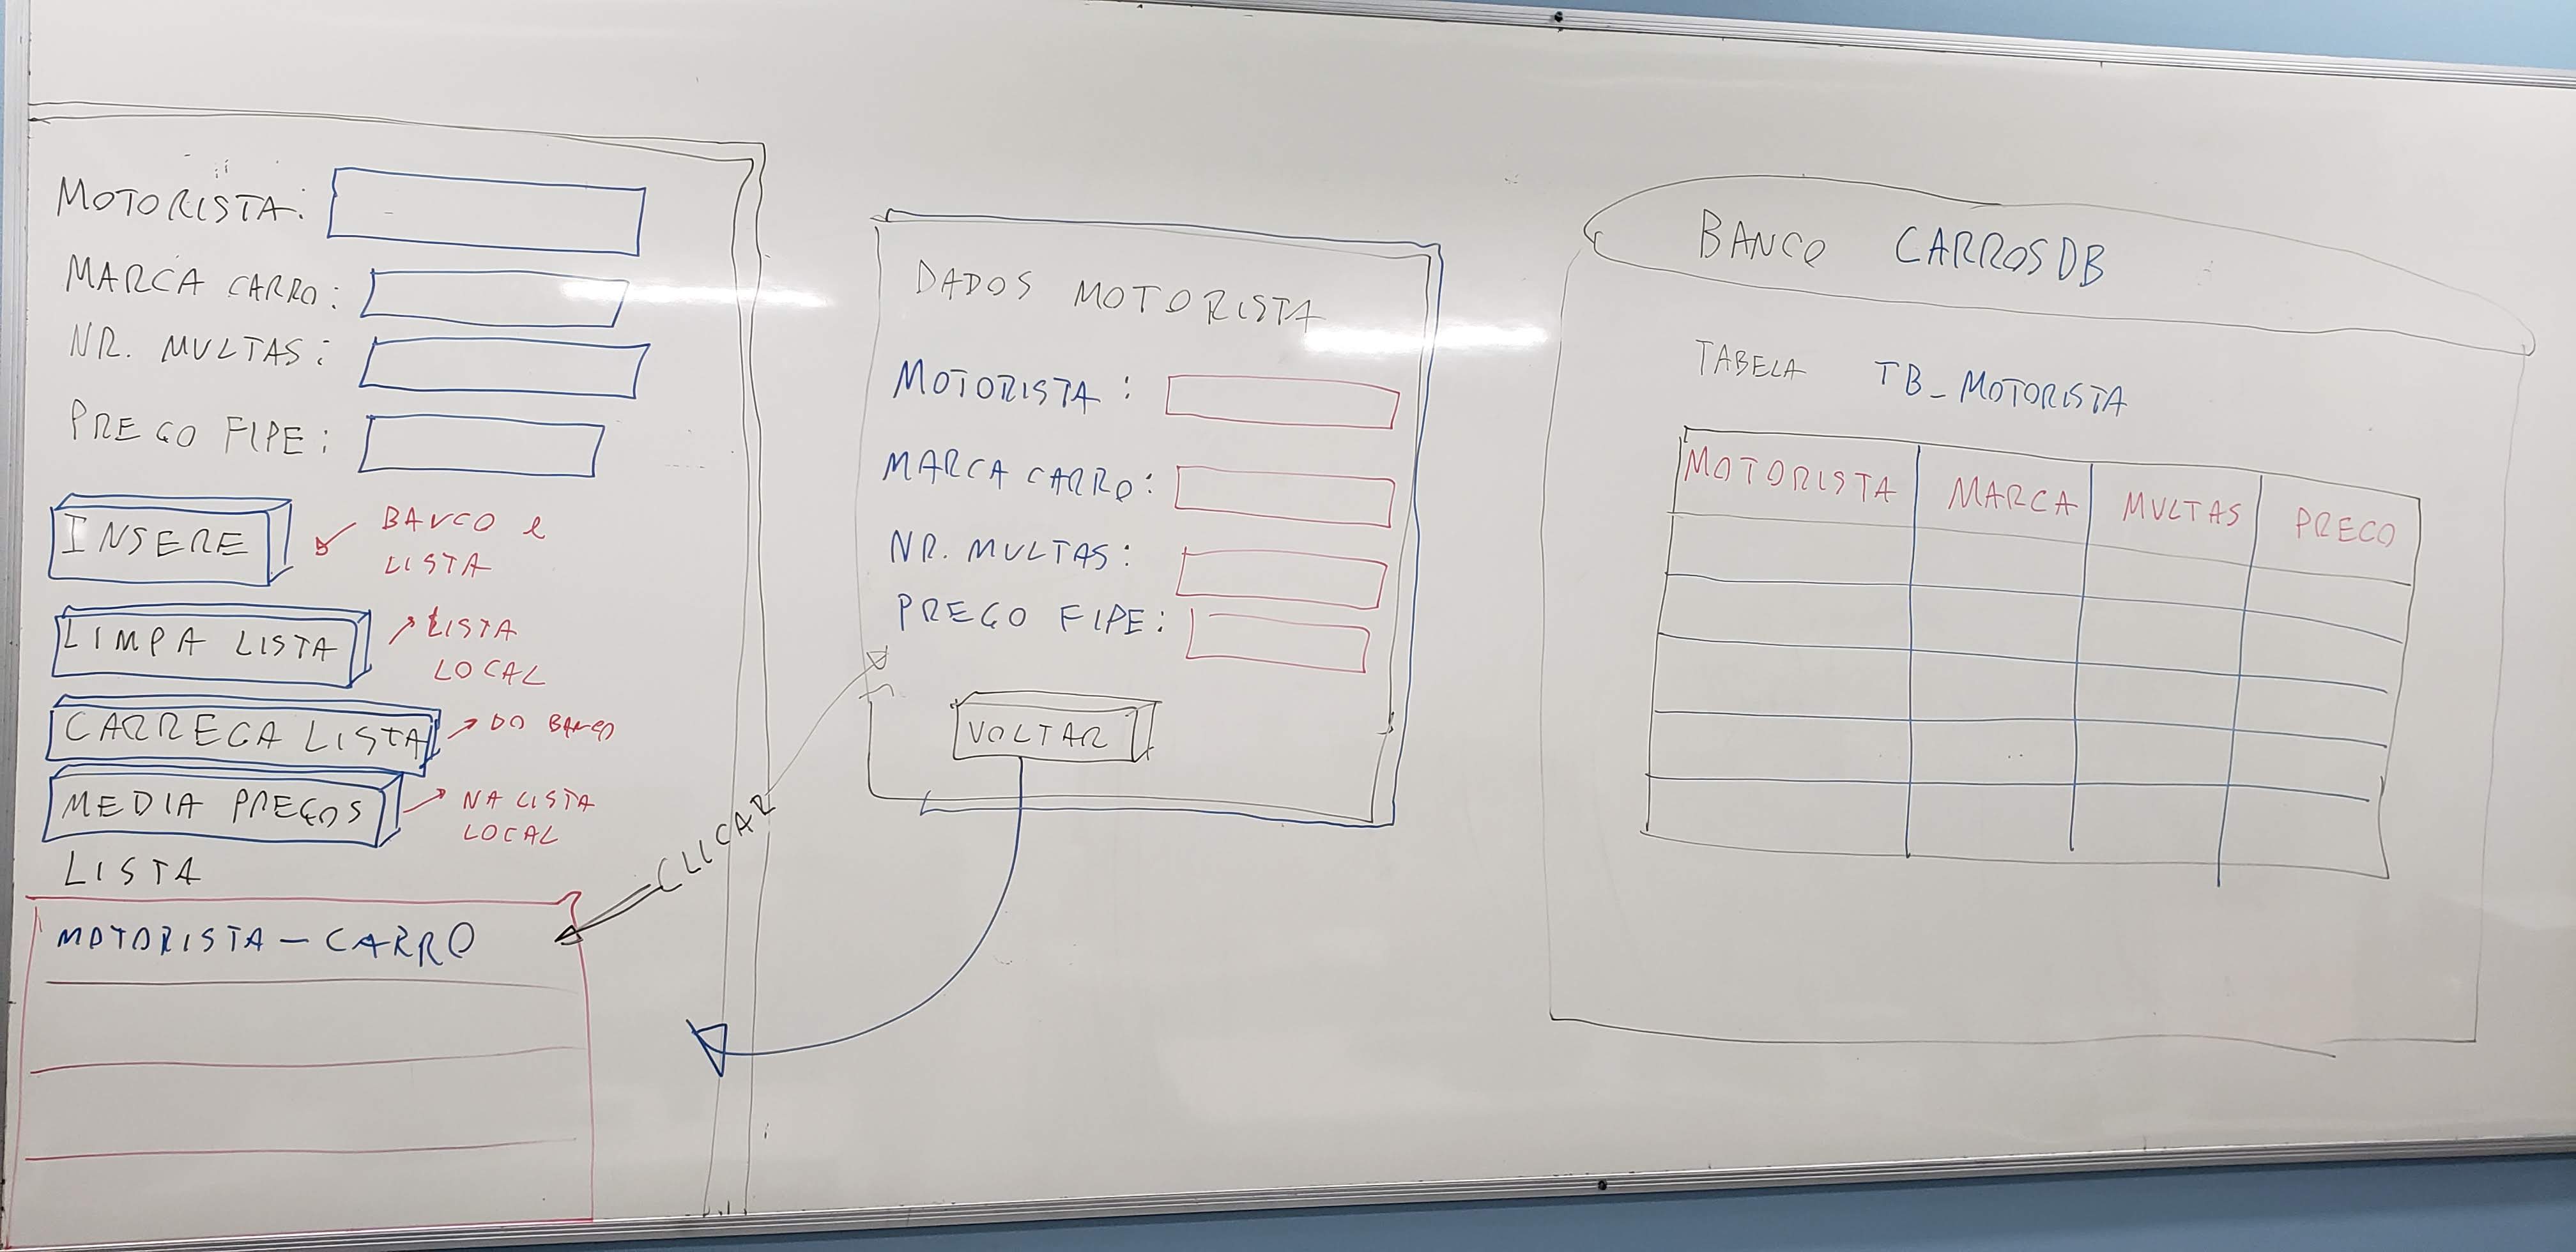 MOTORISTA:
MARCA CARRO:
NR. MULTAS:
PREÇO FIPE:
INSERE
BANCO e
LISTA
LIMPA LISTA
LISTA
LOCAL
CARREGA LISTA
DO BANCO
MEDIA PREÇOS
NA LISTA
LOCAL
LISTA
MOTORISTA - CARRO
CLICAR
DADOS MOTORISTA
MOTORISTA:
MARCA CARRO:
NR. MULTAS:
PREÇO FIPE:
VOLTAR
BANCO CARROSDB
TABELA TB_MOTORISTA
MOTORISTA MARCA MULTAS PRECO